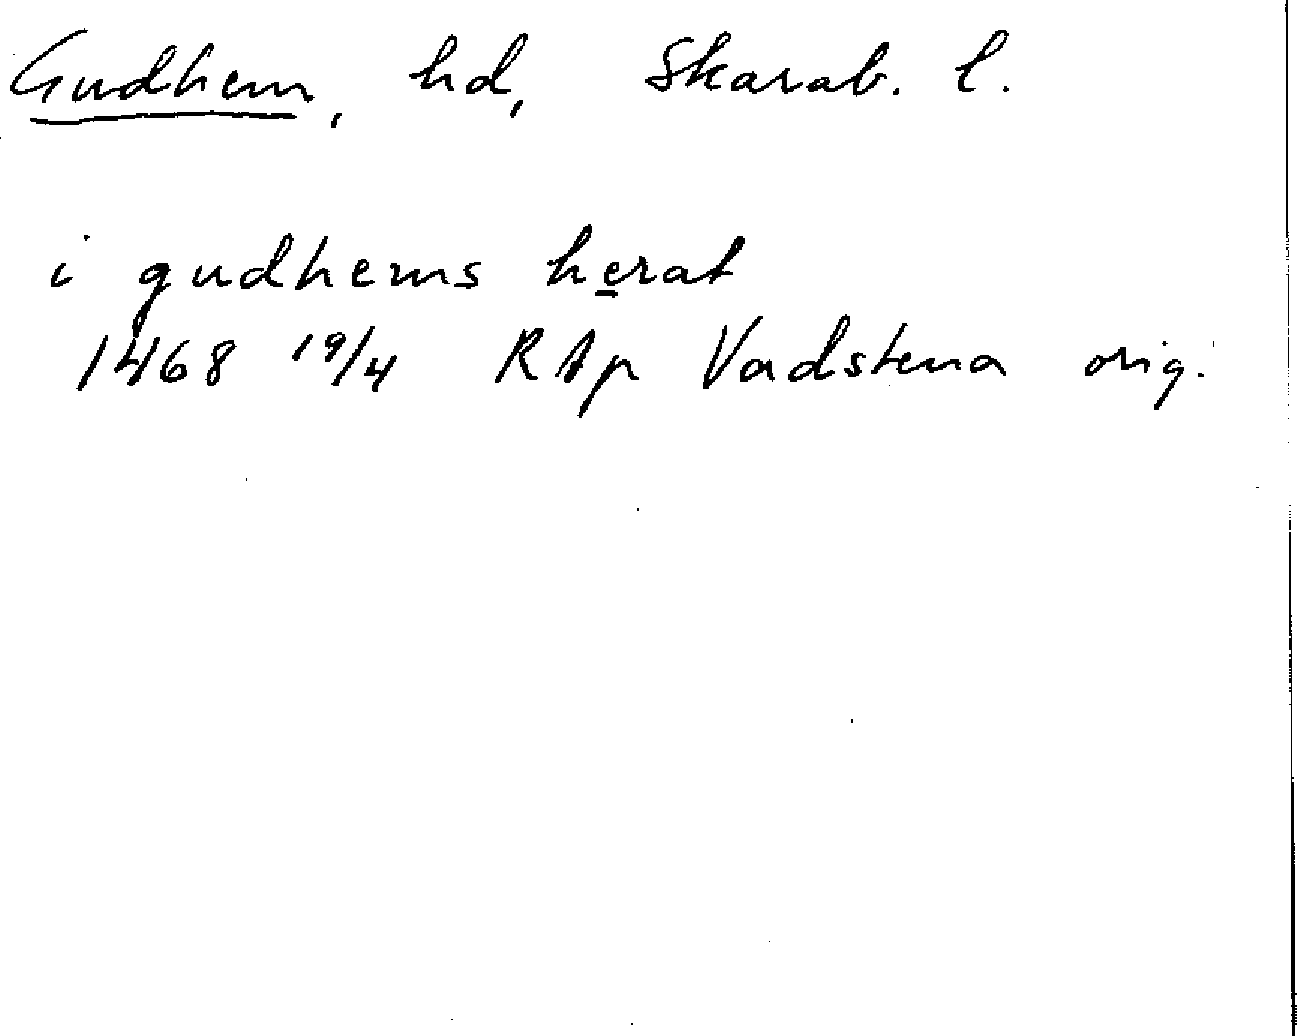 Gudhem, hd, Skarab. l.
i gudhems herat
1468 19/4 RAp Vadstena orig.